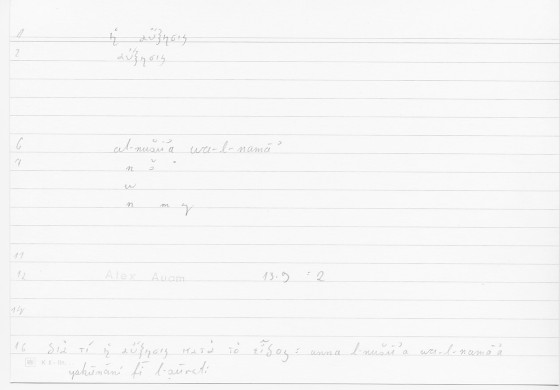 1 ἡ αὔξησις
2 αὔξησις
6 al-nušūʾa wa-l-namāʾ
7 n š ʾ
w
n m y
11
12 Alex Anom 13.9 : 2
14
16 διὰ τί ἡ αὔξησις κατὰ τὸ εἶδος : anna l-nušūʾa wa-l-namāʾa
yakūnāni fī l-ṣūrati